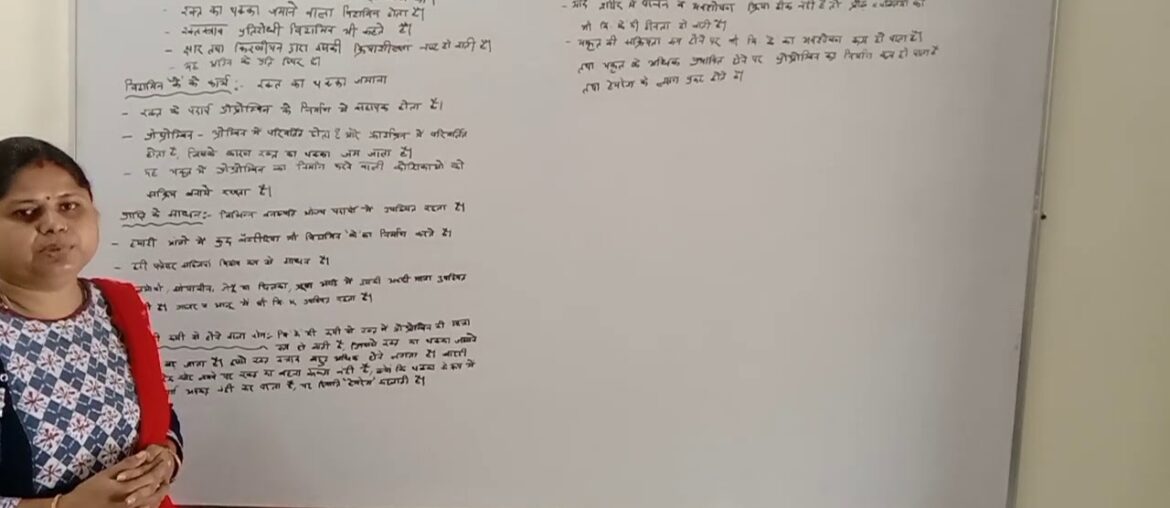 - रक्त का थक्का जमाने वाला विटामिन होता है।
- रक्तस्त्राव प्रतिरोधी विटामिन भी कहते है।
- क्षार तथा किरणीयन द्वारा इसकी क्रियाशीलता नष्ट हो जाती है।
- यह के प्रति स्थिर है।
विटामिन 'के' के कार्य :- रक्त का थक्का जमाना
- रक्त के पदार्थ प्रोथ्रोम्बिन के निर्माण में सहायक होता है।
- प्रोथ्रोम्बिन - थ्रोम्बिन में परिवर्तित होता है और फाइब्रिन में परिवर्तित
होता है, जिसके कारण रक्त का थक्का जम जाता है।
- यह यकृत में प्रोथ्रोम्बिन का निर्माण करने वाली कोशिकाओं को
सक्रिय बनाये रखता है।
प्राप्ति के साधन :- विभिन्न वनस्पति भोज्य पदार्थों में उपस्थित रहता है।
- हमारी आंतों में कुछ बैक्टीरिया भी विटामिन 'के' का निर्माण करते है।
- हरी पत्तेदार सब्जियां विशेष रूप से साधन है।
सोयाबीन, गेहूं का छिलका, में अच्छी मात्रा उपस्थित
है। गाजर व आलू में भी वि. K उपस्थित रहता है।
कमी से होने वाला रोग :- वि. K की कमी से रक्त में प्रोथ्रोम्बिन की मात्रा
कम हो जाती है, जिससे रक्त का थक्का
जाता है। इससे रक्त स्त्राव बहुत अधिक होने लगता है।
चोट लगने पर रक्त का बहना रूकता नहीं है, क्योंकि थक्का के रूप में
नहीं कर पाता है, यह स्थिति कहलाती है।
- यदि शरीर में पाचन व अवशोषण क्रिया ठीक नहीं है तो
भी वि. के की हीनता हो जाती है।
- यकृत की सक्रियता कम होने पर भी वि. के का अवशोषण कम हो पाता है।
तथा यकृत के अधिक प्रभावित होने पर प्रोथ्रोम्बिन का निर्माण कम हो पाता है
तथा के लक्षण प्रकट होते है।